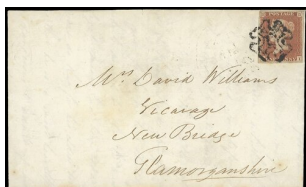 Mrs David Williams
Vicarage
New Bridge
Glamorganshire